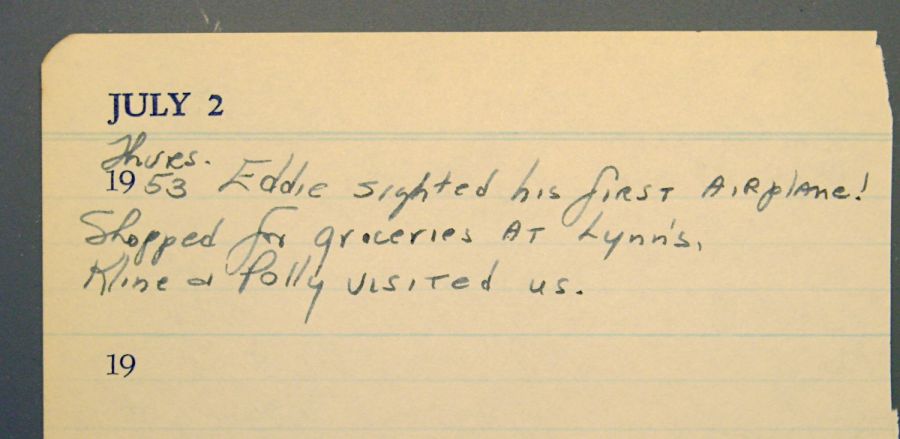 JULY 2
Thurs.
1953 Eddie sighted his first AiRplane!
Shopped for groceries AT Lynn's,
Kline & Polly visited us.
19